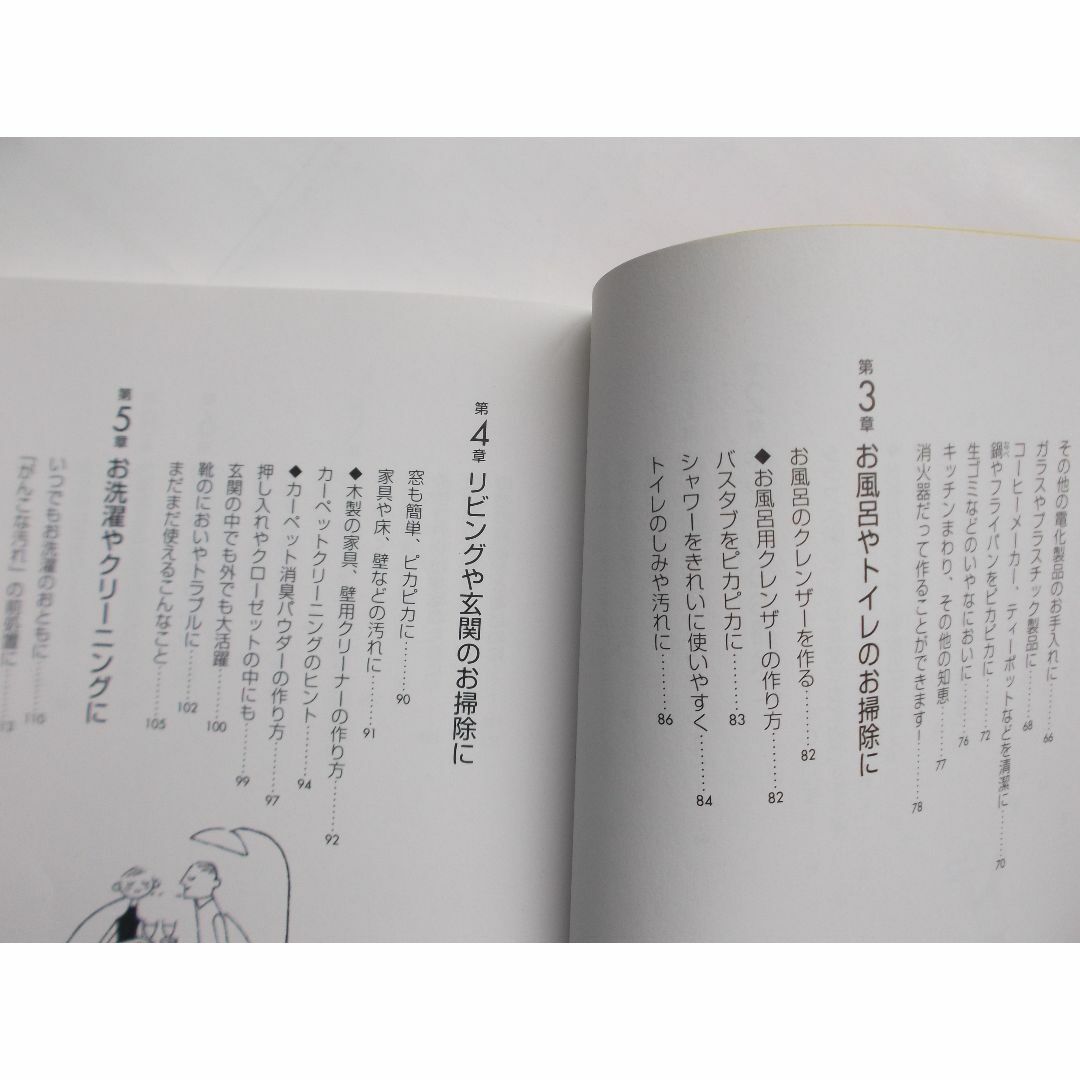 その他の電化製品のお手入れに………66
ガラスやプラスチック製品に………68
コーヒーメーカー、ティーポットなどを清潔に………70
鍋やフライパンをピカピカに………72
生ゴミなどのいやなにおいに………76
キッチンまわり、その他の知恵………77
消火器だって作ることができます！………78
第3章 お風呂やトイレのお掃除に
お風呂のクレンザーを作る………82
◆お風呂用クレンザーの作り方………82
バスタブをピカピカに………83
シャワーをきれいに使いやすく………84
トイレのしみや汚れに………86
第4章 リビングや玄関のお掃除に
窓も簡単、ピカピカに………90
家具や床、壁などの汚れに………91
◆木製の家具、壁用クリーナーの作り方………92
カーペットクリーニングのヒント………94
◆カーペット消臭パウダーの作り方………97
押し入れやクローゼットの中にも………99
玄関の中でも外でも大活躍………100
靴のにおいやトラブルに………102
まだまだ使えるこんなこと………105
第5章 お洗濯やクリーニングに
いつでもお洗濯のおともに………110
「がんこな汚れ」の前処置に………